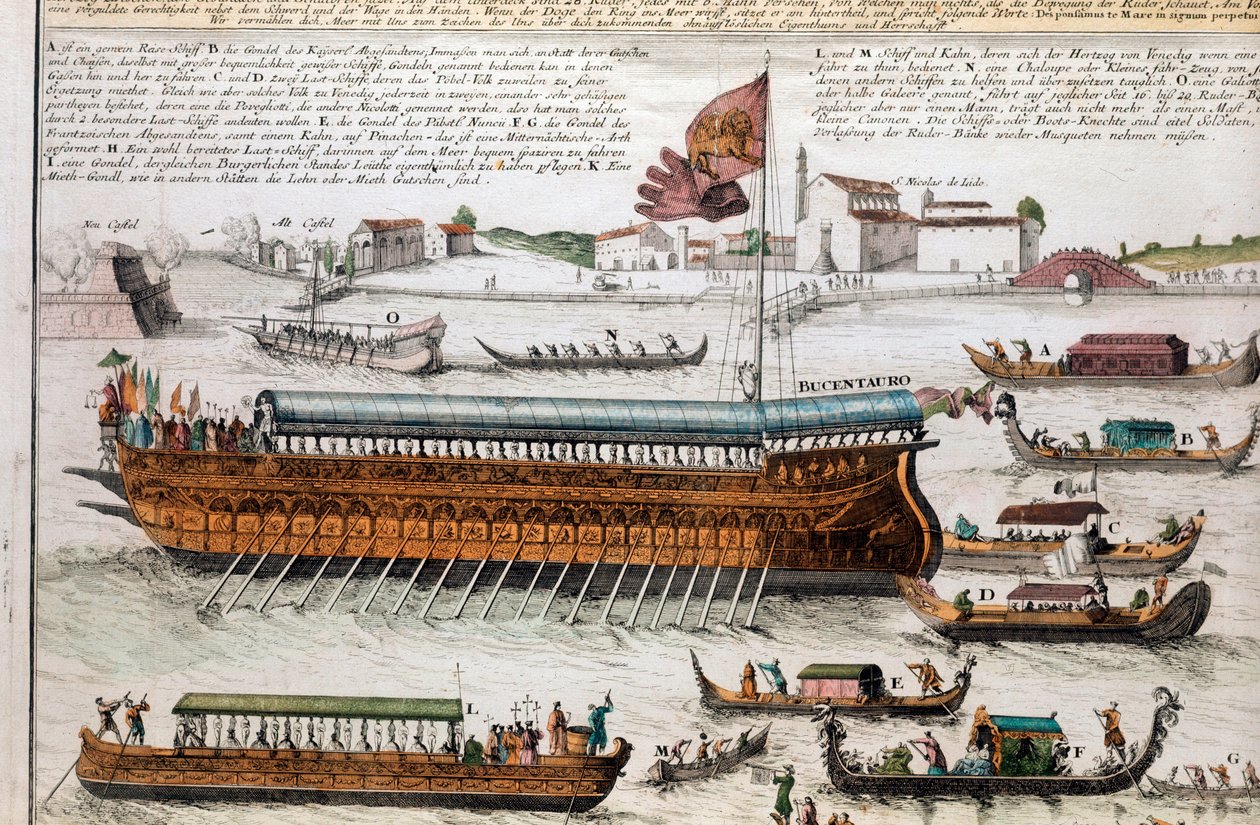 zwischen den Obristen und Senatoren sitzt. Auf dem Unterdeck sind 28. Ruder, jedes mit 6. Mann versehen, von welchem man nichts, als die Bewegung der Ruder, schauet. Am
eine vergüldete Gerechtigkeit nebst den Ohren und der Wage in den Händen. Wenn der Doge den Ring ins Meer wirfft, sitzet er am hintertheil, und spricht folgende Worte: Desponsamus te Mare in signum perpetu
Wir vermählen dich, Meer mit Uns zum zeichen des Uns über dich zukommenden ohnauflöslichen Eigenthums und Herrschafft.
A. ist ein gemein Reise-Schiff B die Gondel des Kayserl. Abgesandtens, Immaßen man sich anstatt derer Gutschen
und Chaisen, daselbst mit großer bequemlichkeit gewißer Schiffe, Gondeln genannt bedienen kan in denen
Gaßen hin und her zu fahren. C und D. zwei Last-Schiffe, deren das Pöbel-Volk zuweilen zu seiner
Ergetzung miethet. Gleich wie aber solches Volk zu Venedig jederzeit in zweyen, einander sehr gehäßigen
partheyen bestehet, deren eine die Poveglioti, die andere Nicolotti genennet werden, also hat man solches
durch 2. besondere Last-Schiffe andeuten wollen E. die Gondel des Päbstl. Nuncii. F. G. die Gondel des
Frantzoischen Abgesandtens, samt einem Kahn, auf Pinachen-das ist eine Mitternächtische-Arth
geformet. H. Ein wohl bereitetes Last-Schiff, darinnen auf dem Meer bequem spaziren zu fahren
I. eine Gondel, dergleichen Burgerlichen Standes Leüthe eigenthümlich zu haben pflegen. K. Eine
Mieth-Gondl, wie in andern Stätten die Lehn oder Mieth Gutschen sind.
L. und M Schiff und Kahn, deren sich der Hertzog von Venedig wenn eine
fährt zu thun, bedienet. N. eine Chaloupe oder Kleines fähr-Zeug, von
denen andern Schiffen zu helffen und sie zu nützen tauglich. O. eine Galio
oder halbe Galeere genant, führt auf jeglicher Seit 16. biß 20. Ruder-B
jeglicher aber nur einen Mann, trägt auch nicht mehr als einen Mast
kleine Canonen. Die Schiffs- oder Boots-Knechte sind eitel Soldaten,
Verlaßung der Ruder-Bänke wieder Musqueten nehmen müßen.
S. Nicolas de Lido.
Neu Castel
Alt Castel
O
N
A
BUCENTAURO
B
C
D
E
L
M
F
G